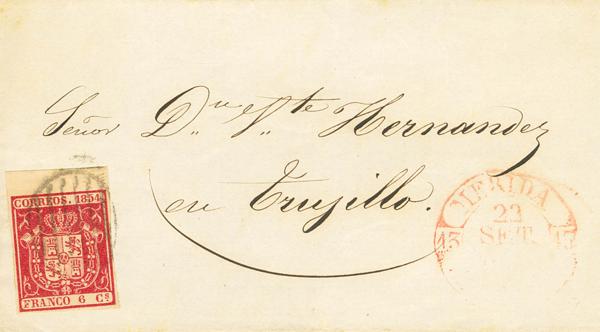 Señor Dn. Vte. Hernandez
en Trujillo.
CORREOS. 1854
FRANCO 6 Cs
MERIDA
22
SET.
13 13